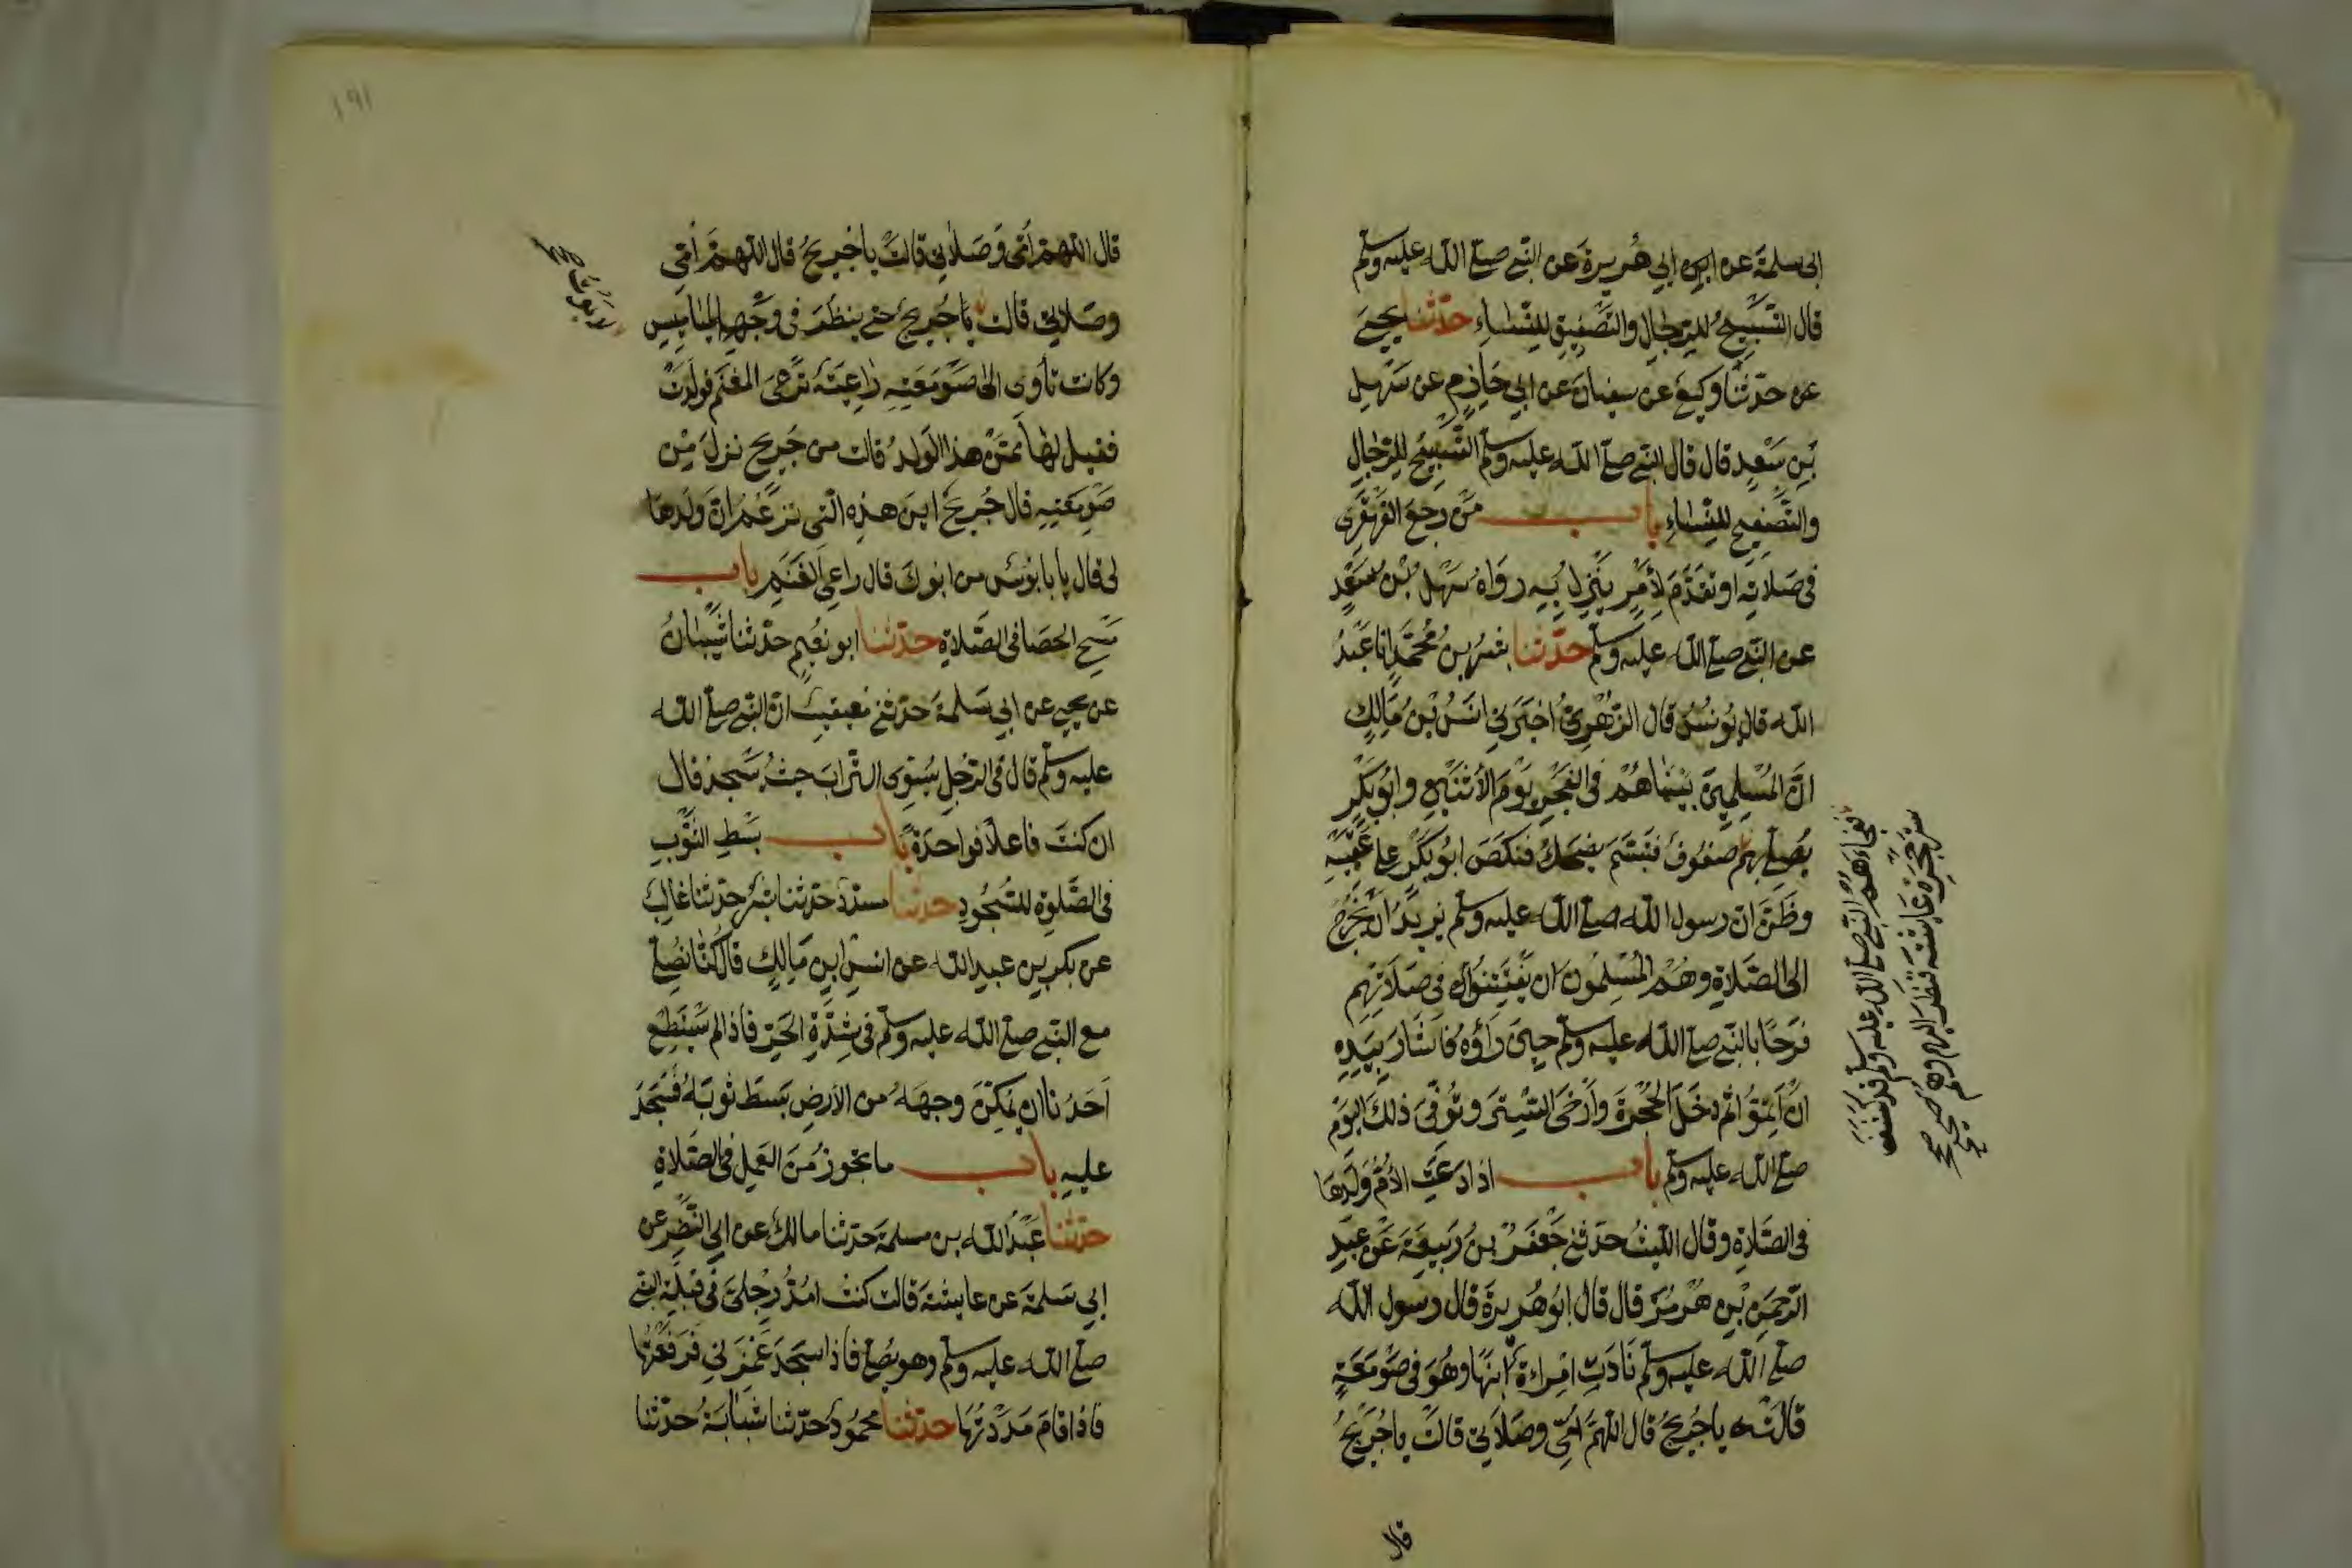 ابى سلمة عن ابى هريرة عن النبى صلى الله عليه وسلم
قال التسبيح للرجال والتصفيق للنساء حدثنا يحيى
عن حدثنا وكيع عن سفيان عن ابى حازم عن سهيل
بن سعد قال قال النبى صلى الله عليه وسلم التسبيح للرجال
والتصفيح للنساء باب من رجع القهقرى
فى صلاته او تقدم لأمر ينزل به رواه سهل بن سعد
عن النبى صلى الله عليه وسلم حدثنا بشر بن محمد انا عبد
الله قال يونس قال الزهرى اخبرنى انس بن مالك
ان المسلمين بينماهم فى الفجر يوم الأثنين وابو بكر
يصلى بهم صفوف فتبسم يضحك فنكص ابو بكر على عقبيه
وظن ان رسول الله صلى الله عليه وسلم يريد ان يخرج
الى الصلاة وهم المسلمون ان يفتتنوا فى صلاتهم
فرحا بالنبى صلى الله عليه وسلم حين رأوه فأشار بيده
ان اتموا ثم دخل الحجرة وأرخى الستر وتوفى ذلك اليوم
صلى الله عليه وسلم باب اذا دعت الأم ولدها
فى الصلاة وقال الليث حدثنى جعفر بن ربيعة عن عبد
الرحمن بن هرمز قال قال ابو هريرة قال رسول الله
صلى الله عليه وسلم نادت امراءة ابنها وهو فى صومعة
قالت يا جريج قال اللهم امى وصلاتى قالت يا جريج
قال
ففجاءهم النبى صلى الله عليه وسلم قد كشف
ستر حجرة عائشة فنظر اليهم وهم
صح
قال اللهم امى وصلاتى قالت يا جريج قال اللهم امى
وصلاتى قالت يا جريج حتى ينظر فى وجه الميامیس
وكانت تأوى الى صومعته راعية ترعى الغنم فولدت
فقيل لها ممن هذا الولد قالت من جريج نزل من
صومعته قال جريج اين هذه التى تزعم ان ولدها
لى قال يا بابوس من ابوك قال راعى الغنم باب
مسح الحصا فى الصلاة حدثنا ابو نعيم حدثنا شيبان
عن يحيى عن ابى سلمة حدثنى معيقيب ان النبى صلى الله
عليه وسلم قال فى الرجل يسوى التراب حيث يسجد قال
ان كنت فاعلا فواحدة باب بسط الثوب
فى الصلوة للسجود حدثنا مسدد حدثنا بشر حدثنا غالب
عن بكر بن عبد الله عن انس ابن مالك قال كنا نصلى
مع النبى صلى الله عليه وسلم فى شدة الحر فاذا لم يستطع
احدنا ان يمكن وجهه من الأرض بسط ثوبه فسجد
عليه باب ما يجوز من العمل فى الصلاة
حدثنا عبد الله بن مسلمة حدثنا مالك عن ابى النضر عن
ابى سلمة عن عايشة قالت كنت امد رجلى فى قبلة النبى
صلى الله عليه وسلم وهو يصلى فاذا سجد غمزنى فرفعتها
فاذا قام مددتها حدثنا محمود حدثنا شبابة حدثنا
١٩١